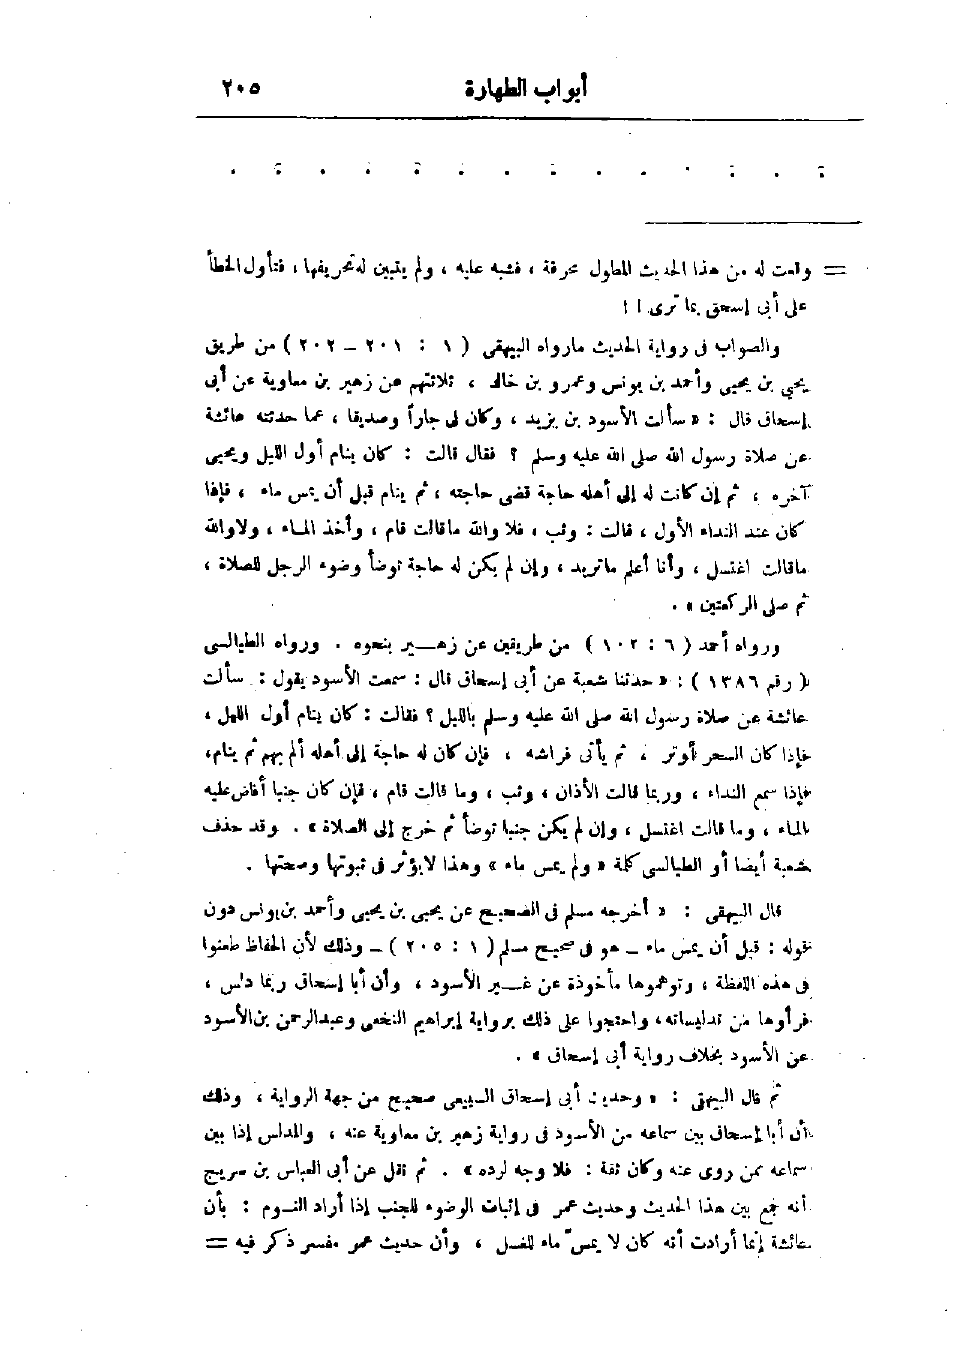 أبواب الطهارة ٢٠٥
= وقعت له من هذا الحديث المطول محرفة ، فشبه عليه ، ولم يتبين له تحريفها ، فتأول الخطأ
على أبى إسحق بما ترى ! !
والصواب فى رواية الحديث مارواه البيهقى ( ١ : ٢٠١ ــ ٢٠٢ ) من طريق
يحيى بن يحيى وأحمد بن يونس وعمرو بن خالد ، ثلاثتهم عن زهير بن معاوية عن أبى
إسحاق قال : « سألت الأسود بن يزيد ، وكان لى جاراً وصديقا ، عما حدثته عائشة
عن صلاة رسول الله صلى الله عليه وسلم ؟ فقال قالت : كان ينام أول الليل ويحيى
آخره ، ثم إن كانت له إلى أهله حاجة قضى حاجته ، ثم ينام قبل أن يمس ماء ، فإذا
كان عند النداء الأول ، قالت : وثب ، فلا والله ماقالت قام ، وأخذ الماء ، ولا والله
ماقالت اغتسل ، وأنا أعلم ماتريد ، وإن لم يكن له حاجة توضأ وضوء الرجل للصلاة ،
ثم صلى الركعتين » .
ورواه أحمد ( ٦ : ١٠٢ ) من طريقين عن زهــير بنحوه . ورواه الطيالسى
( رقم ١٣٨٦ ) : « حدثنا شعبة عن أبى إسحاق قال : سمعت الأسود يقول : سألت
عائشة عن صلاة رسول الله صلى الله عليه وسلم بالليل ؟ فقالت : كان ينام أول الليل ،
فإذا كان السحر أوتر ، ثم يأتى فراشه ، فإن كان له حاجة إلى أهله ألم بهم ثم ينام ،
فإذا سمع النداء ، وربما قالت الأذان ، وثب ، وما قالت قام ، فإن كان جنبا أفاض عليه
الماء ، وما قالت اغتسل ، وإن لم يكن جنبا توضأ ثم خرج إلى الصلاة » . وقد حذف
شعبة أيضا أو الطيالسى كلمة « ولم يمس ماء » وهذا لايؤثر فى ثبوتها وصحتها .
قال البيهقى : « أخرجه مسلم فى الصحيح عن يحيى بن يحيى وأحمد بن يونس دون
قوله : قبل أن يمس ماء ــ هو فى صحيح مسلم ( ١ : ٢٠٥ ) ــ وذلك لأن الحفاظ طعنوا
فى هذه اللفظة ، وتوهموها مأخوذة عن غــير الأسود ، وأن أبا إسحاق ربما دلس ،
فرأوها من تدليساته ، واحتجوا على ذلك برواية إبراهيم النخعى وعبدالرحمن بن الأسود
عن الأسود بخلاف رواية أبى إسحاق » .
ثم قال البيهقى : « وحديث أبى إسحاق السبيعى صحيح من جهة الرواية ، وذلك
أن أبا إسحاق بين سماعه من الأسود فى رواية زهير بن معاوية عنه ، والمدلس إذا بين
سماعه ممن روى عنه وكان ثقة : فلا وجه لرده » . ثم نقل عن أبى العباس بن سريج
أنه جمع بين هذا الحديث وحديث عمر فى إثبات الوضوء للجنب إذا أراد النــوم : بأن
عائشة إنما أرادت أنه كان لا يمسّ ماء للغسل ، وأن حديث عمر مفسر ذكر فيه =